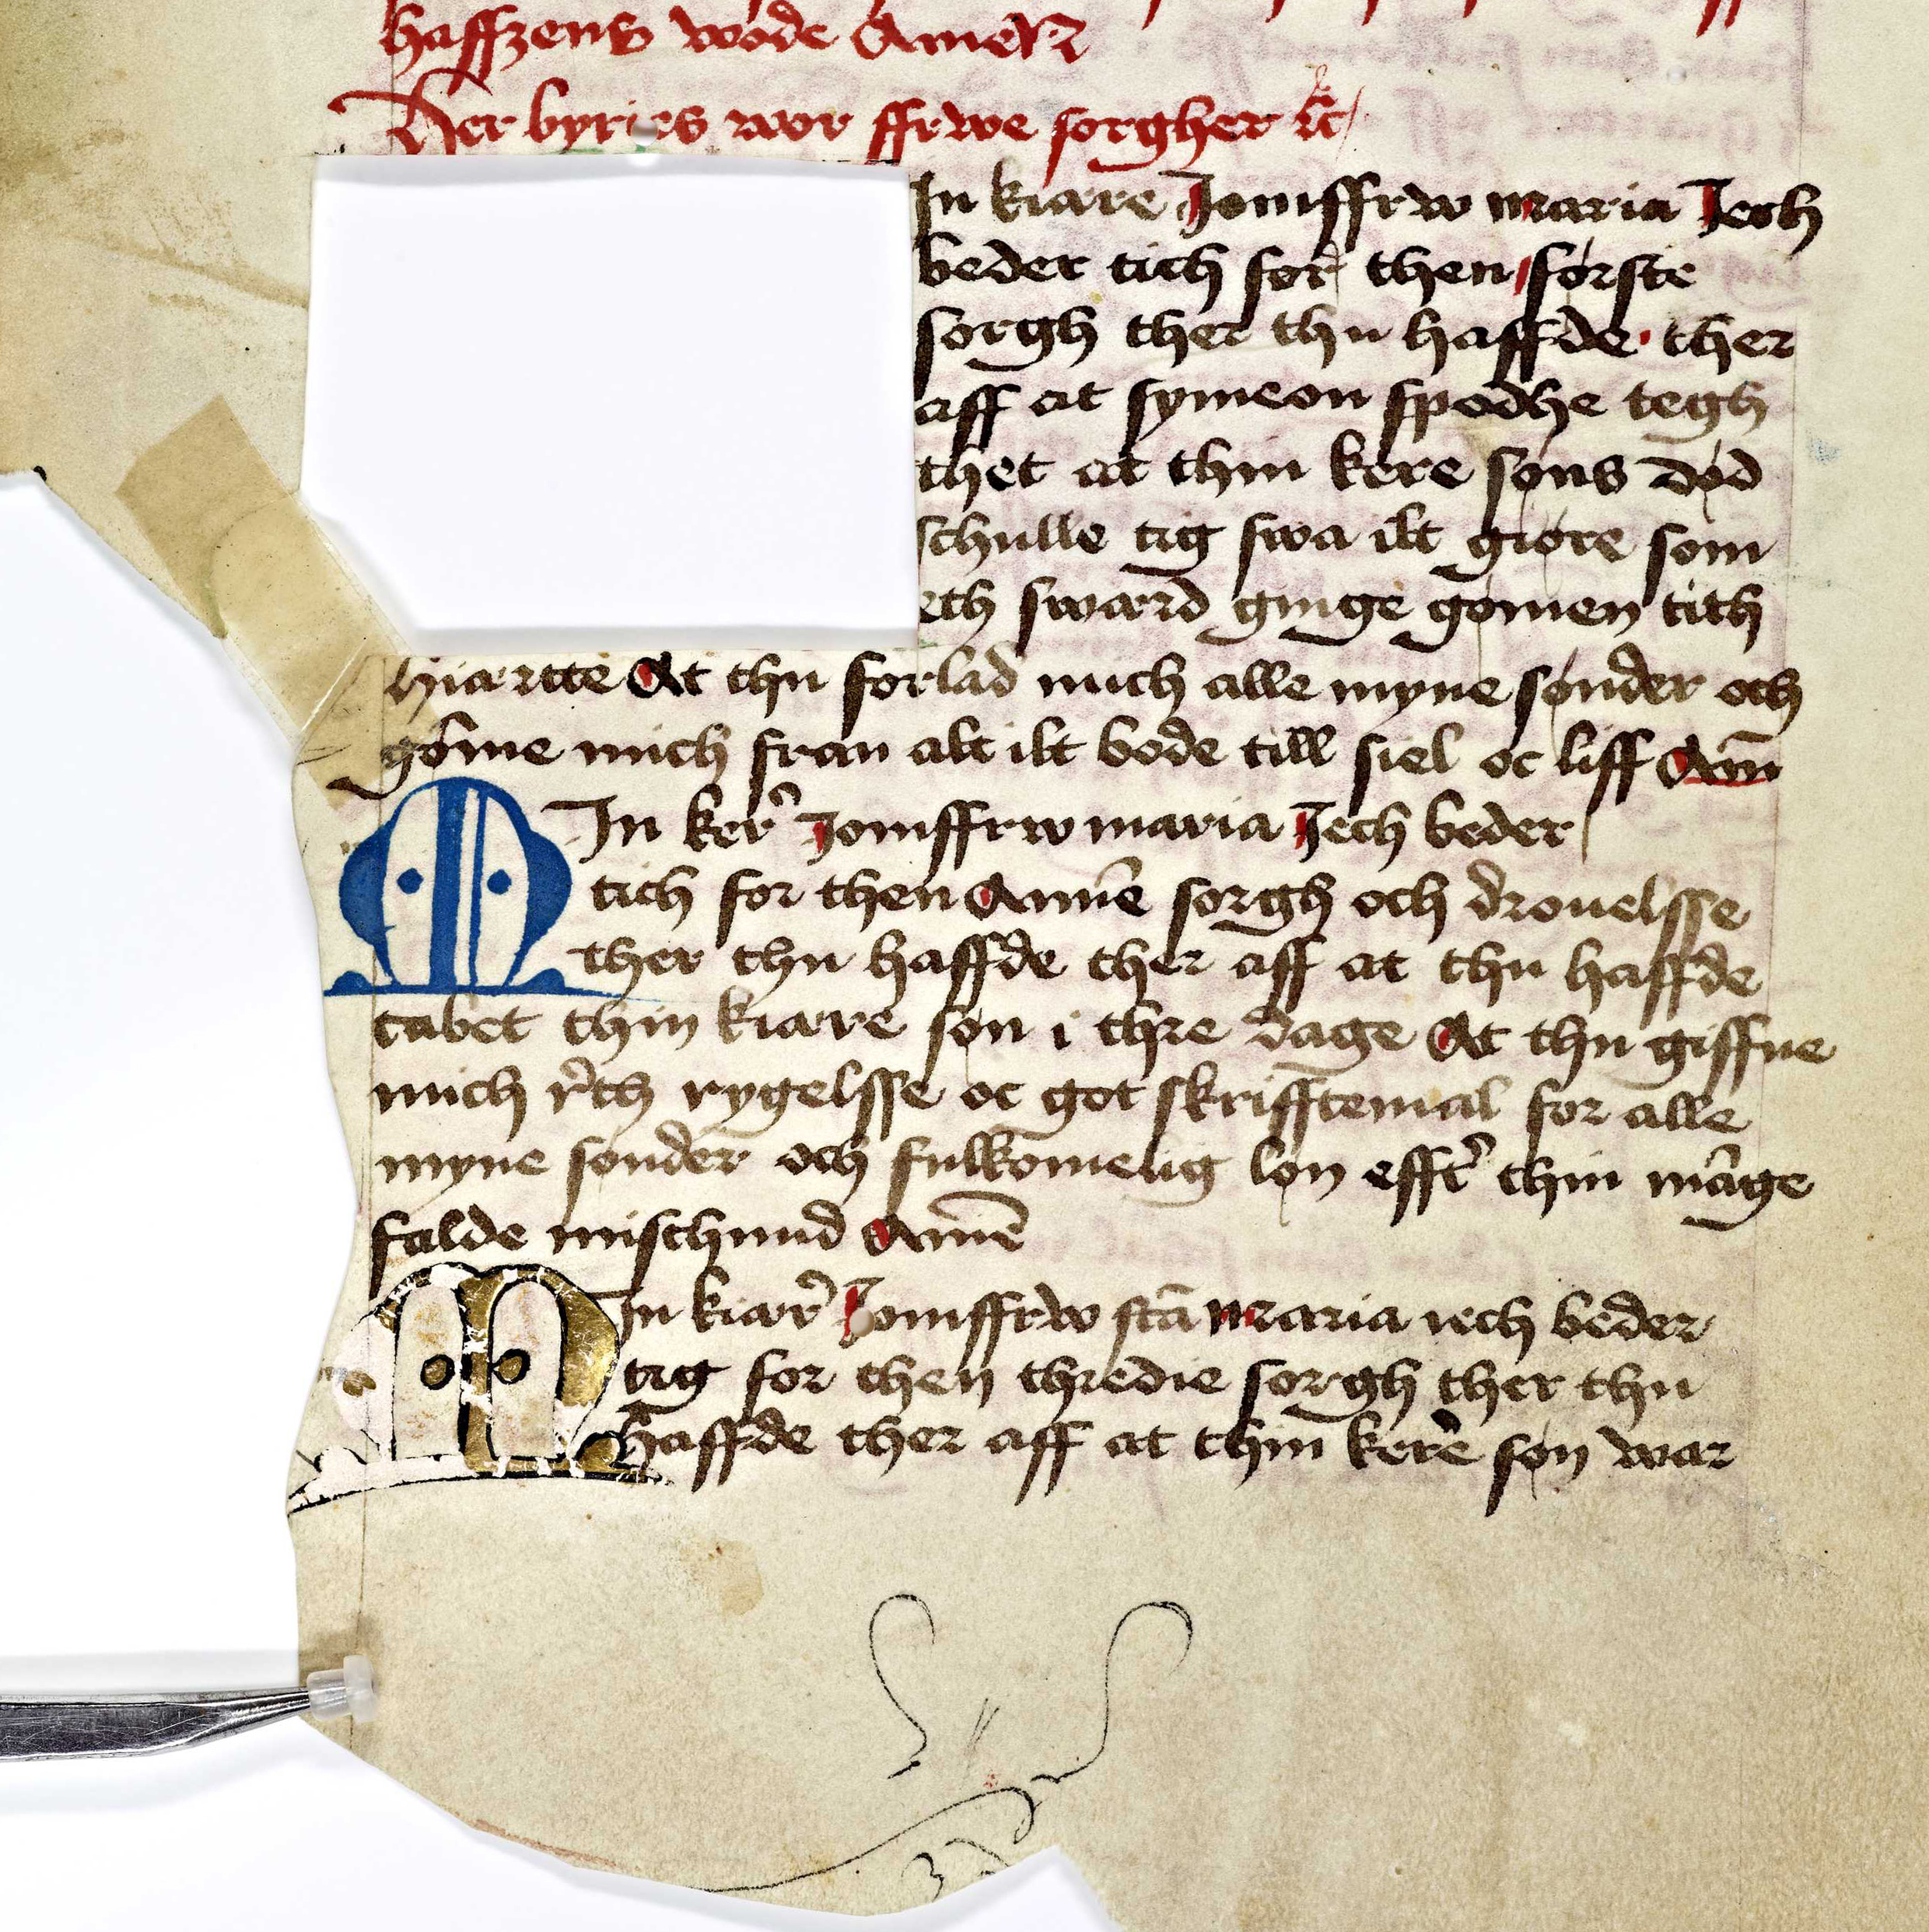 haffzens wode Amen
Her byries wor ffrwe sorgher etc
In kiare Jomffrw maria Jech
beder tich for then første
sorgh ther thu haffde ther
aff at symeon spodhe tegh
thet at thin kere søns død
schulle tig swa ilt giøre som
eth sward ginge gømen tith
hiartte At thu forlad mich alle myne sønder och
gøme mich fran alt ilt bode till siel oc liff Am̅
MIn ker̛ Jomffrw maria Jech beder
tich for then Anne̅ sorgh och drouelsse
ther thu haffde ther aff at thu haffde
tabet thin kiare søn i thre dage At thu giffue
mich r̛th rygelsse oc got skrifftemal for alle
myne sønder och fulkomelig løn efft̛ thin ma̅ge
falde mischund Ame̅
MIn kiar̛ Jomffrw sta̅ Maria iech beder
tig for then thredie sorgh ther thu
haffde ther aff at thin kere søn war